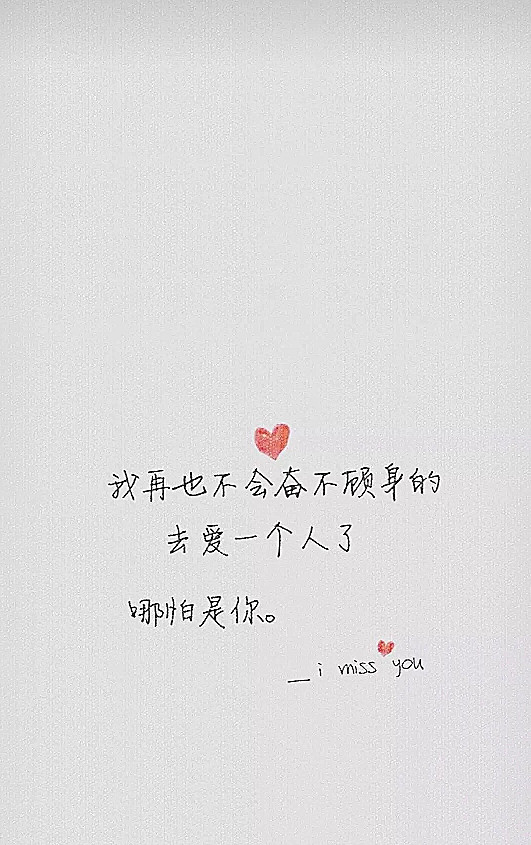 我再也不会奋不顾身的
去爱一个人了
哪怕是你。
_ i miss you